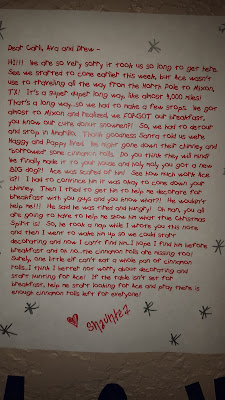 Dear Cash, Ava and Drew -
HI!!!! We are so very sorry it took us so long to get here.
See we started to come earlier this week, but Ace wasn't
use to traveling all the way from the North Pole to Nixon,
TX! It's a super duper long way, like almost 4,000 miles!
That's a long way...so we had to make a few stops. We got
almost to Nixon and realized we FORGOT our breakfast,
you know our cute donut snowmen?! So, we had to detour
and stop in Thank goodness Santa told us we're
Maggy and Pappy lived. We right down their chimney and
"borrowed" some cinnamon rolls. Do you think they will mind?
We finally made it to your house and holy moly you got a new
BIG dog!! Ace was scared of him! See how much work Ace
is?! I had to convince him it was okay to come down your
chimney. Then I tried to get him to help me decorate for
breakfast with you guys and you know what?! He wouldn't
help me!!! He said he was tired and hungry! Oh man, you all
are going to have to help me show him what the Christmas
Spirit is! So, he took a nap while I wrote you this note
and then I went to wake him up so we could start
decorating and now I can't find him...I hope I find him before
breakfast and oh no...the cinnamon rolls are missing too!
Surely, one little elf can't eat a whole pan of cinnamon
rolls...I think I better not worry about decorating and
start hunting for Ace! If the table isn't set for
breakfast, help me start looking for Ace and pray there is
enough cinnamon rolls left for everyone!